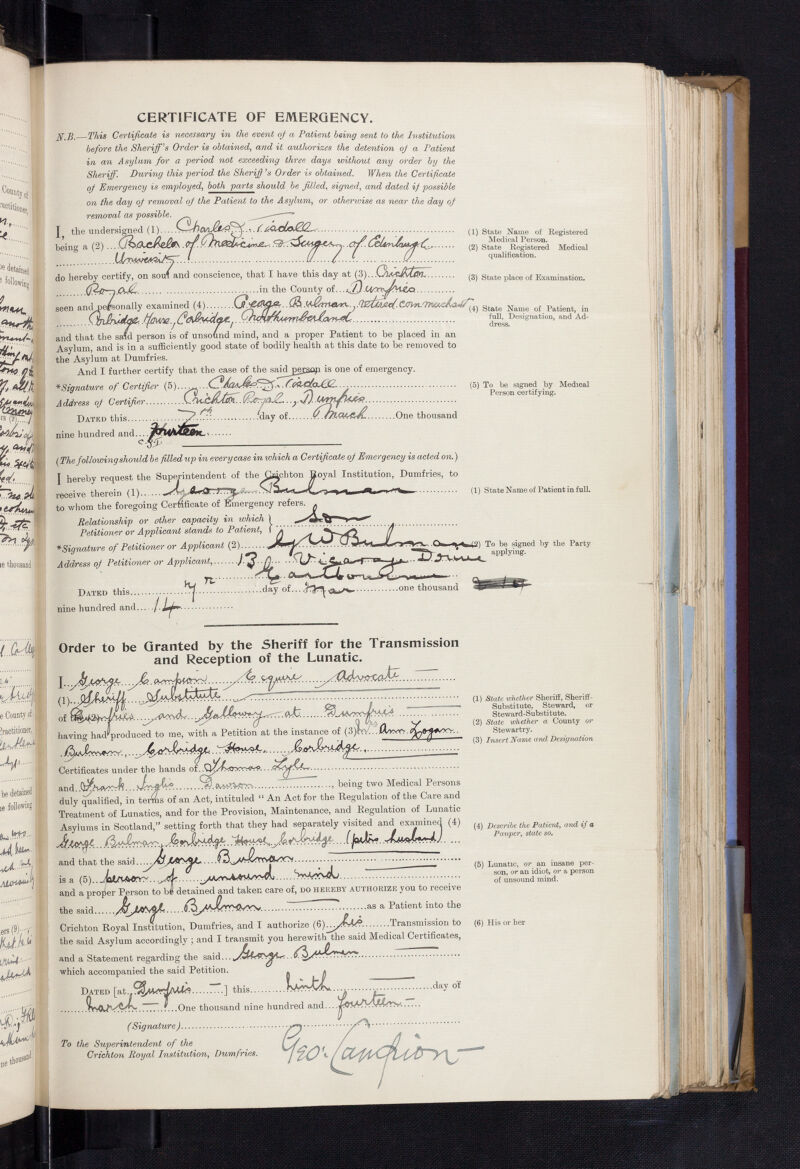 CERTIFICATE OF EMERGENCY.
N.B.—This Certificate is necessary in the event of a Patient being sent to the Institution
before the Sheriff's Order is obtained, and it authorizes the detention of a Patient
in an Asylum for a period not exceeding three days without any order by the
Sheriff. During this period the Sheriff's Order is obtained. When the Certificate
of Emergency is employed, both parts should be filled, signed, and dated if possible
on the day of removal of the Patient to the Asylum, or otherwise as near the day of
removal as possible.
I, the undersigned (1) Charles J. Tisdall
being a (2) Bachelor of Medicine & Surgery of Edinburgh
University
do hereby certify, on soul and conscience, that I have this day at (3) Crichton
Royal in the County of Dumfries
seen and personally examined (4) George Bulman, retired corn merchant
Corbridge House, Corbridge, Northumberland
and that the said person is of unsound mind, and a proper Patient to be placed in an
Asylum, and is in a sufficiently good state of bodily health at this date to be removed to
the Asylum at Dumfries.
And I further certify that the case of the said person is one of emergency.
*Signature of Certifier (5) Charles J. Tisdall
Address of Certifier Crichton Royal, Dumfries
DATED this 7th day of March One thousand
nine hundred and fourteen
(1) State Name of Registered
Medical Person.
(2) State Registered Medical
qualification.
(3) State place of Examination.
(4) State Name of Patient, in
full, Designation, and Ad-
dress.
(5) To be signed by Medical
Person certifying.
C.J.T.
(The following should be filled up in every case in which a Certificate of Emergency is acted on.)
I hereby request the Superintendent of the Crichton Royal Institution, Dumfries, to
receive therein (1) George Bulman
to whom the foregoing Certificate of Emergency refers.
Relationship or other capacity in which
Petitioner or Applicant stands to Patient, Son
*Signature of Petitioner or Applicant (2) G W Bulman
Address of Petitioner or Applicant, 13 Vicarage Drive
Eastbourne
DATED this 7th day of Mar one thousand
nine hundred and 14
(1) State Name of Patient in full.
(2) To be signed by the Party
applying.
Order to be Granted by the Sheriff for the Transmission
and Reception of the Lunatic.
I, George Campion Esquire Advocate
(1) Sheriff Substitute
of Dumfries and Galloway at Dumfries
having had produced to me, with a Petition at the instance of (3) Mrs Ann Logan
Bulman, Corbridge House, Corbridge,
Certificates under the hands of Thomas Lyle
and Frank Inglis Dawson, being two Medical Persons
duly qualified, in terms of an Act, intituled "An Act for the Regulation of the Care and
Treatment of Lunatics, and for the Provision, Maintenance, and Regulation of Lunatic
Asylums in Scotland," setting forth that they had separately visited and examined (4)
George Bulman, Corbridge House, Corbridge (petrs husband)
and that the said George Bulman
is a (5) person of unsound mind
and a proper Person to be detained and taken care of, DO HEREBY AUTHORIZE you to receive
the said George Bulman as a Patient into the
Crichton Royal Institution, Dumfries, and I authorize (6) his Transmission to
the said Asylum accordingly; and I transmit you herewith the said Medical Certificates,
and a Statement regarding the said George Bulman
which accompanied the said Petition.
DATED [at Dumfries] this ninth day of
March One thousand nine hundred and fourteen
(Signature)
To the Superintendent of the
Crichton Royal Institution, Dumfries.
Geo: Campion
(1) State whether Sheriff, Sheriff-
Substitute, Steward, or
Steward-Substitute.
(2) State whether a County or
Stewartry.
(3) Insert Name and Designation
(4) Describe the Patient, and if a
Pauper, state so.
(5) Lunatic, or an insane per-
son, or an idiot, or a person
of unsound mind.
(6) His or her